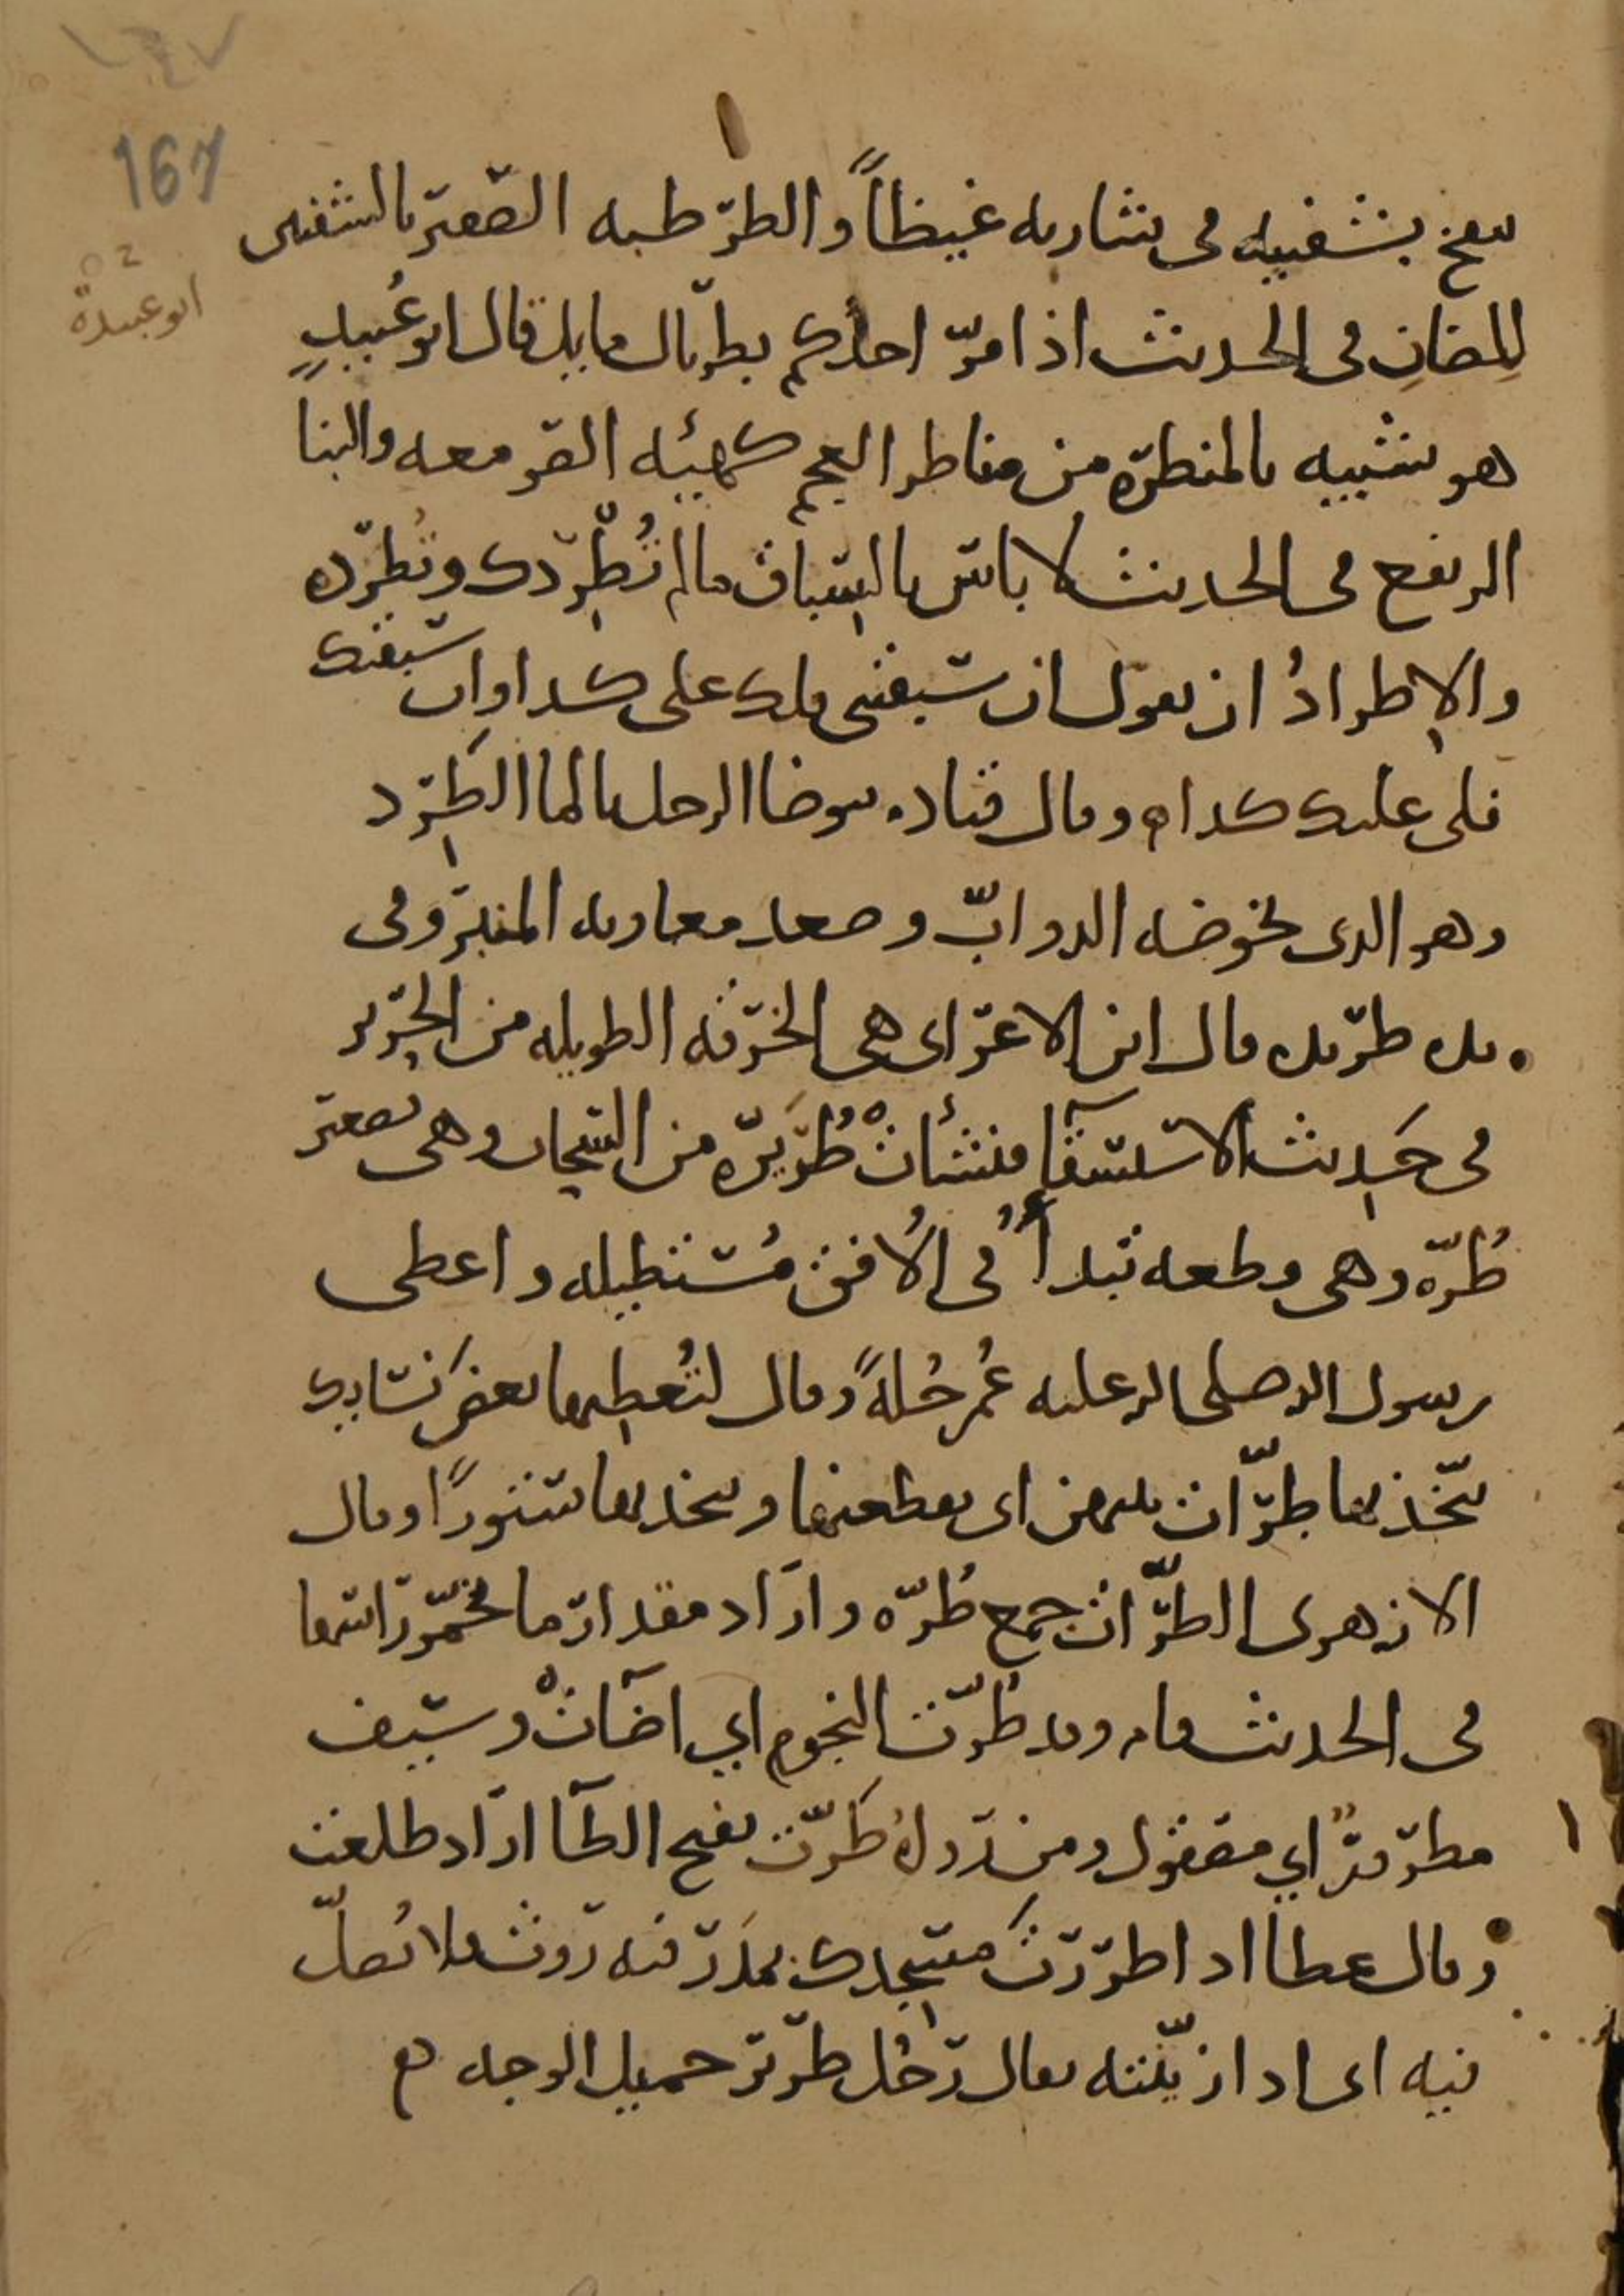 ١٦٧
167
ينفخ بشفتيه في شاربه غيظاً والطرطبه الصفير بالشفتين
ابو عبيدة
للضان في الحديث اذا مرّ احدكم بطربال مايل قال ابو عُبيدٍ
هو شبيه بالمنظرة من مناظر العجم كهيئه الصومعه والبنا
المرتفع في الحديث لا باس بالسباق ما لم تُطْرِدك وتُطرِده
والإطرادُ ان تقول ان سبقتني فلك على كذا وان سبقتك
فلى عليك كذا ه وقال قتاده يتوضا الرجل بالما الطرِد
وهو الذي تخوضه الدوابّ وصعد معاويه المنبر وفى
يده طريده قال ابن الاعرابي هي الخرقه الطويله من الحرير
في حَديث الاستسقآءِ فنشأتْ طُرَيرة من السحاب وهي تصغير
طُرّه وهي قطعه تبدأُ في الأُفق مُستطيله واعطى
رسول الله صلى الله عليه عُمر حُلةً وقال لتُعطِها بعض نسايك
يتّخذنها طُرّات بينهن اي يقطعنها ويتخذنها ستورًا وقال
الازهرى الطُرّات جمع طُرّه واراد مقدار ما تخمّر راسها
في الحديث قام وقد طُرّت النجوم اي اضآتْ وسيف
مطرورٌ اي مصقول ومن رواه طَرّت بفتح الطآ اراد طلعت
وقال عطا اذا طررتَ مسجدك بمَدَر فيه روث فلا تُصلّ
فيه اى اذا زيّنته يقال رجُل طرير جميل الوجه ه